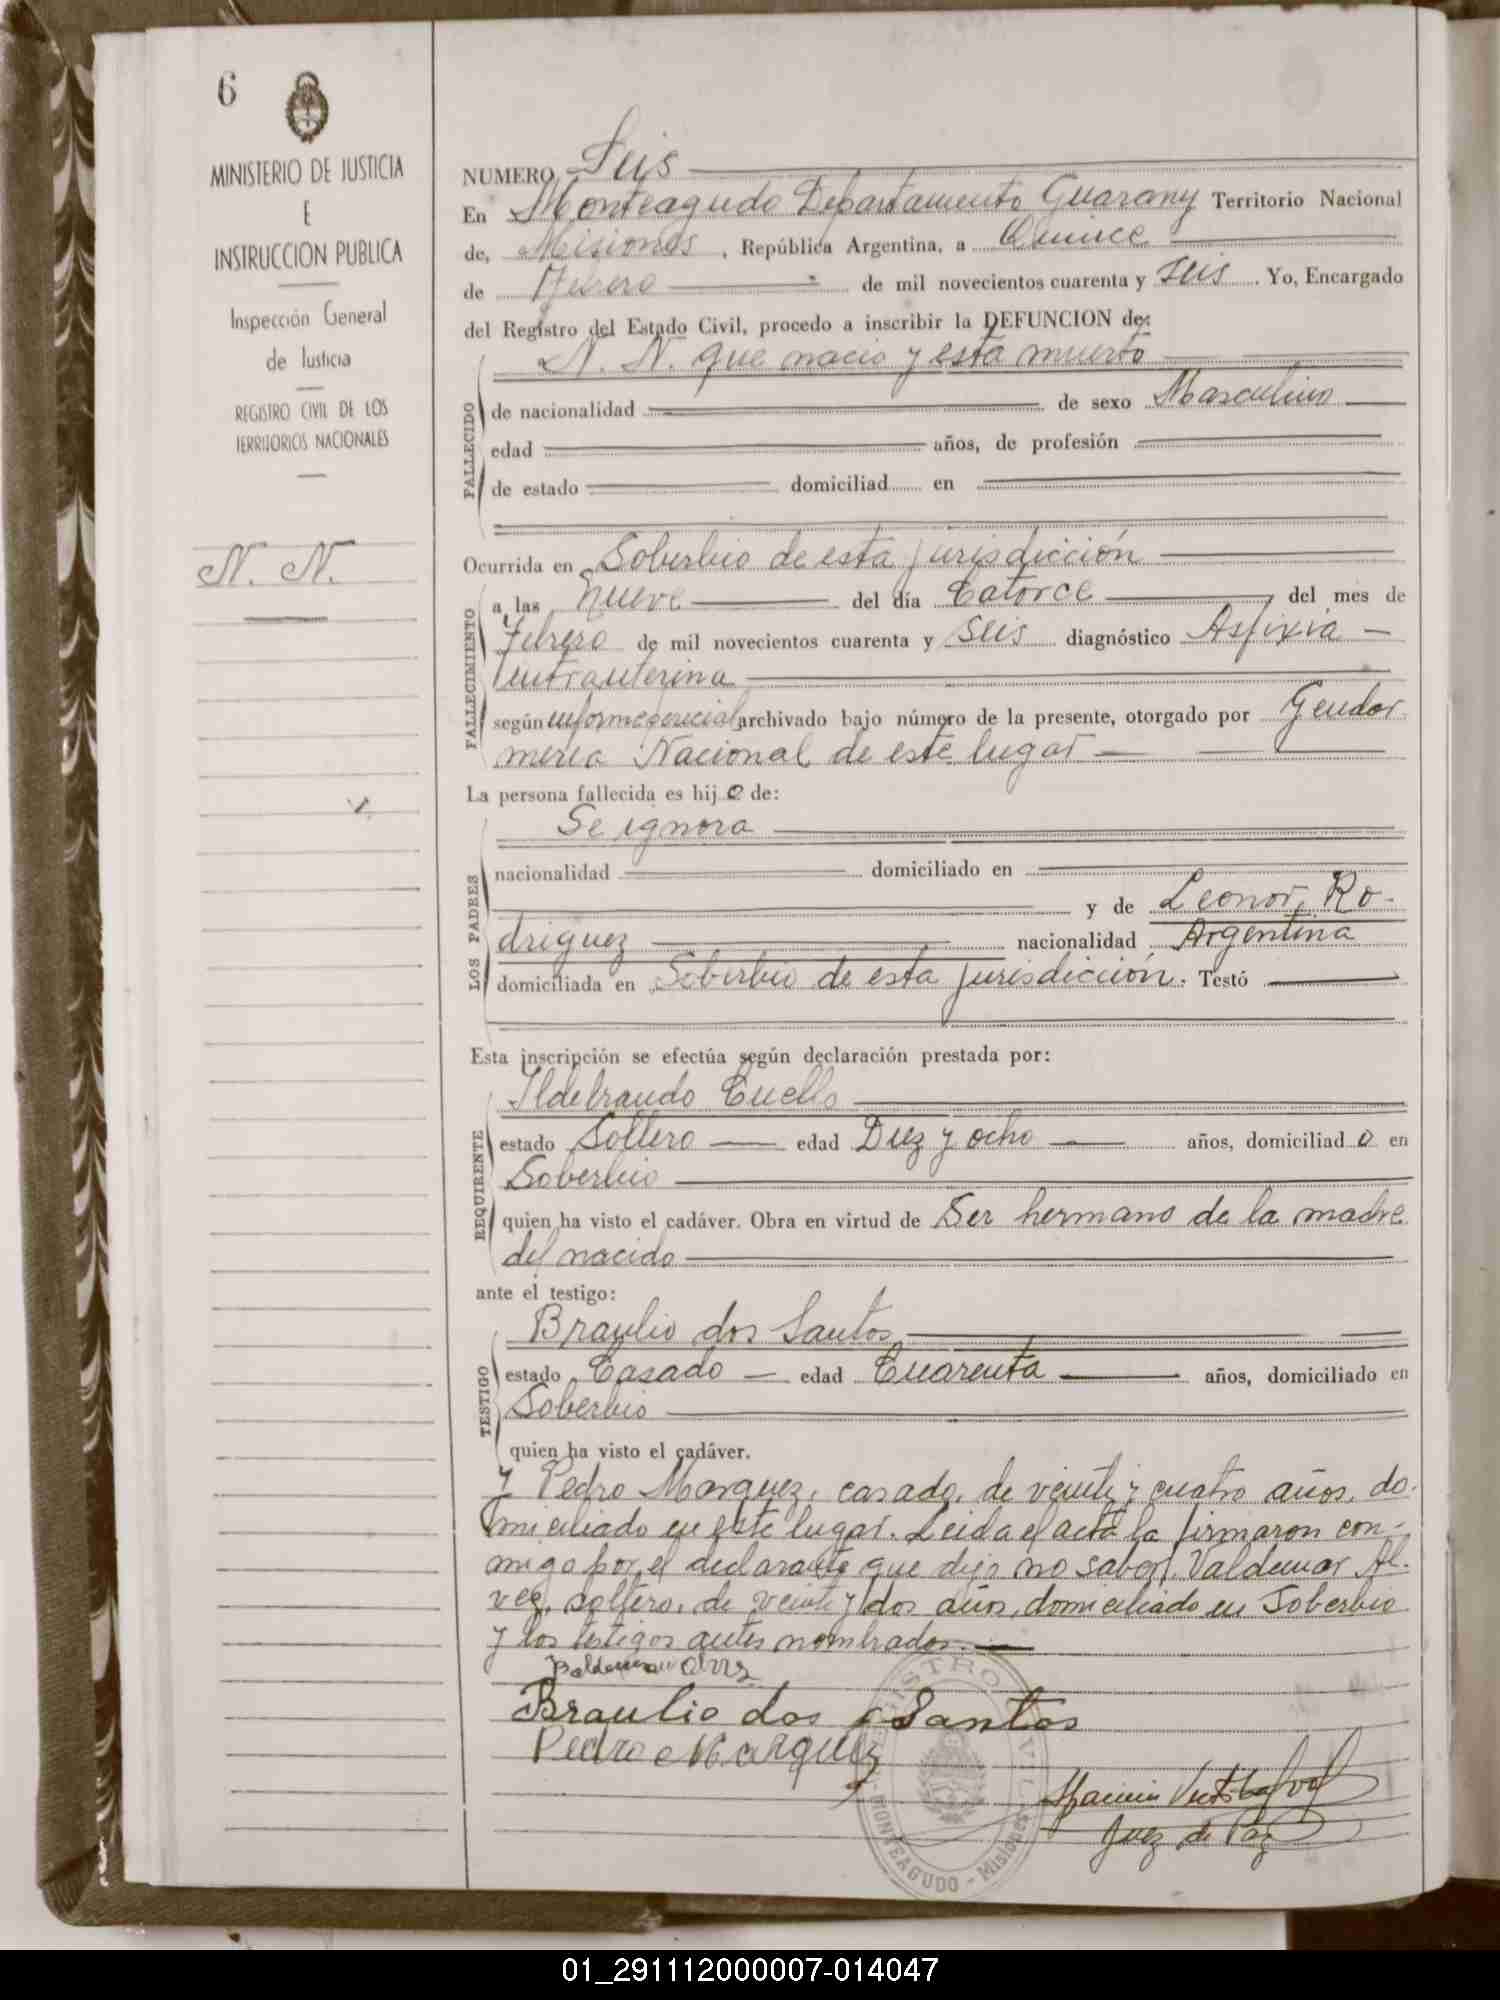 6
MINISTERIO DE JUSTICIA
E
INSTRUCCION PUBLICA
Inspección General
de Justicia
REGISTRO CIVIL DE LOS
TERRITORIOS NACIONALES
N. N.
NUMERO Seis
En Monteagudo Departamento Guarany Territorio Nacional
de, Misiones, República Argentina, a Quince
de Febrero de mil novecientos cuarenta y seis. Yo, Encargado
del Registro del Estado Civil, procedo a inscribir la DEFUNCION de:
N. N. que nacio y esta muerto
FALLECIDO
de nacionalidad de sexo Masculino
edad años, de profesión
de estado domiciliad en
Ocurrida en Soberbio de esta jurisdicción
FALLECIMIENTO
a las nueve del día Catorce del mes de
Febrero de mil novecientos cuarenta y seis diagnóstico Asfixia
intrauterina
según informe pericial archivado bajo número de la presente, otorgado por Gendar
meria Nacional de este lugar
La persona fallecida es hijo de:
Se ignora
LOS PADRES
nacionalidad domiciliado en
y de Leonor Ro-
driguez nacionalidad Argentina
domiciliada en Soberbio de esta jurisdicción. Testó
Esta inscripción se efectúa según declaración prestada por:
Ildebrando Cuello
REQUIRENTE
estado Soltero edad Diez y ocho años, domiciliado en
Soberbio
quien ha visto el cadáver. Obra en virtud de Ser hermano de la madre
del nacido
ante el testigo:
Braulio dos Santos
TESTIGO
estado Casado edad Cuarenta años, domiciliado en
Soberbio
quien ha visto el cadáver.
Y Pedro Marquez, casado, de veinte y cuatro años, do-
miciliado en este lugar. Leida el acta la firmaron con-
migo por el declarante que dijo no saber, Valdemar Al-
vez, soltero, de veinte y dos años, domiciliado en Soberbio
y los testigos antes nombrados.
Braulio dos Santos
Pedro Marquez
Juez de Paz
REGISTRO CIVIL
MONTEAGUDO - Misiones
01_291112000007-014047